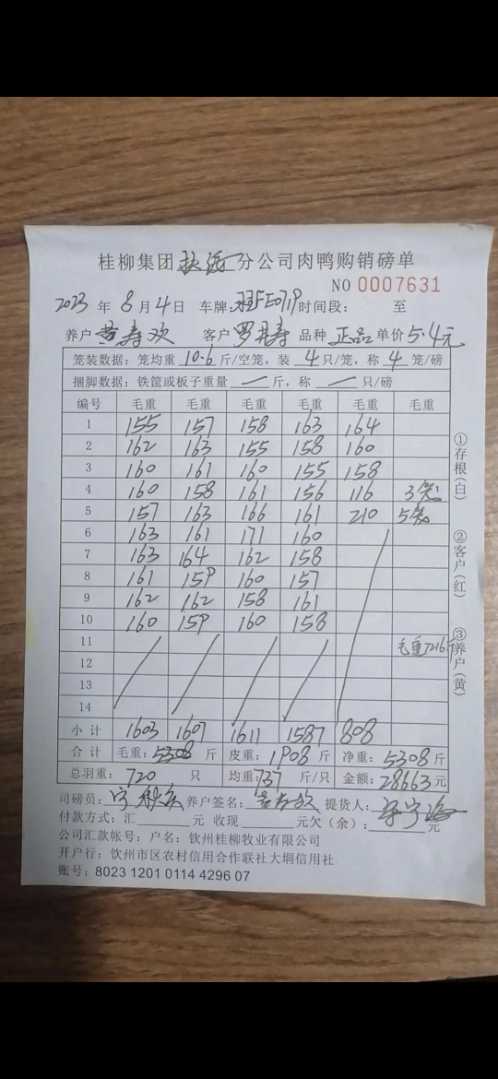 桂柳集团 分公司肉鸭购销磅单
NO 0007631
2023 年 8 月 4 日 车牌: 时间段: 至
养户 黄寿欢 客户 罗其寿 品种 正品 单价 5.4元
笼装数据: 笼均重 10.6 斤/空笼, 装 4 只/笼, 称 4 笼/磅
捆脚数据: 铁筐或板子重量 一 斤, 称 一 只/磅
编号 毛重 毛重 毛重 毛重 毛重 毛重
1 155 157 158 163 164
2 162 163 155 158 160
3 160 161 160 155 158
4 160 158 161 156 116 3笼
5 157 163 166 161 210 5笼
6 163 161 171 160
7 163 164 162 158
8 161 159 160 157
9 162 162 158 161
10 160 159 160 158
11 毛重7216斤
12
13
14
小计 1603 1607 1611 1587 808
合计 毛重: 5308 斤 皮重: 1908 斤 净重: 5308 斤
总羽重: 720 只 均重: 737 斤/只 金额: 28663 元
司磅员: 养户签名: 提货人:
付款方式: 汇 元 收现 元欠(余): 元
公司汇款帐号: 户名: 钦州桂柳牧业有限公司
开户行: 钦州市区农村信用合作联社大垌信用社
账号: 8023 1201 0114 4296 07
①存根(白)
②客户(红)
③养户(黄)